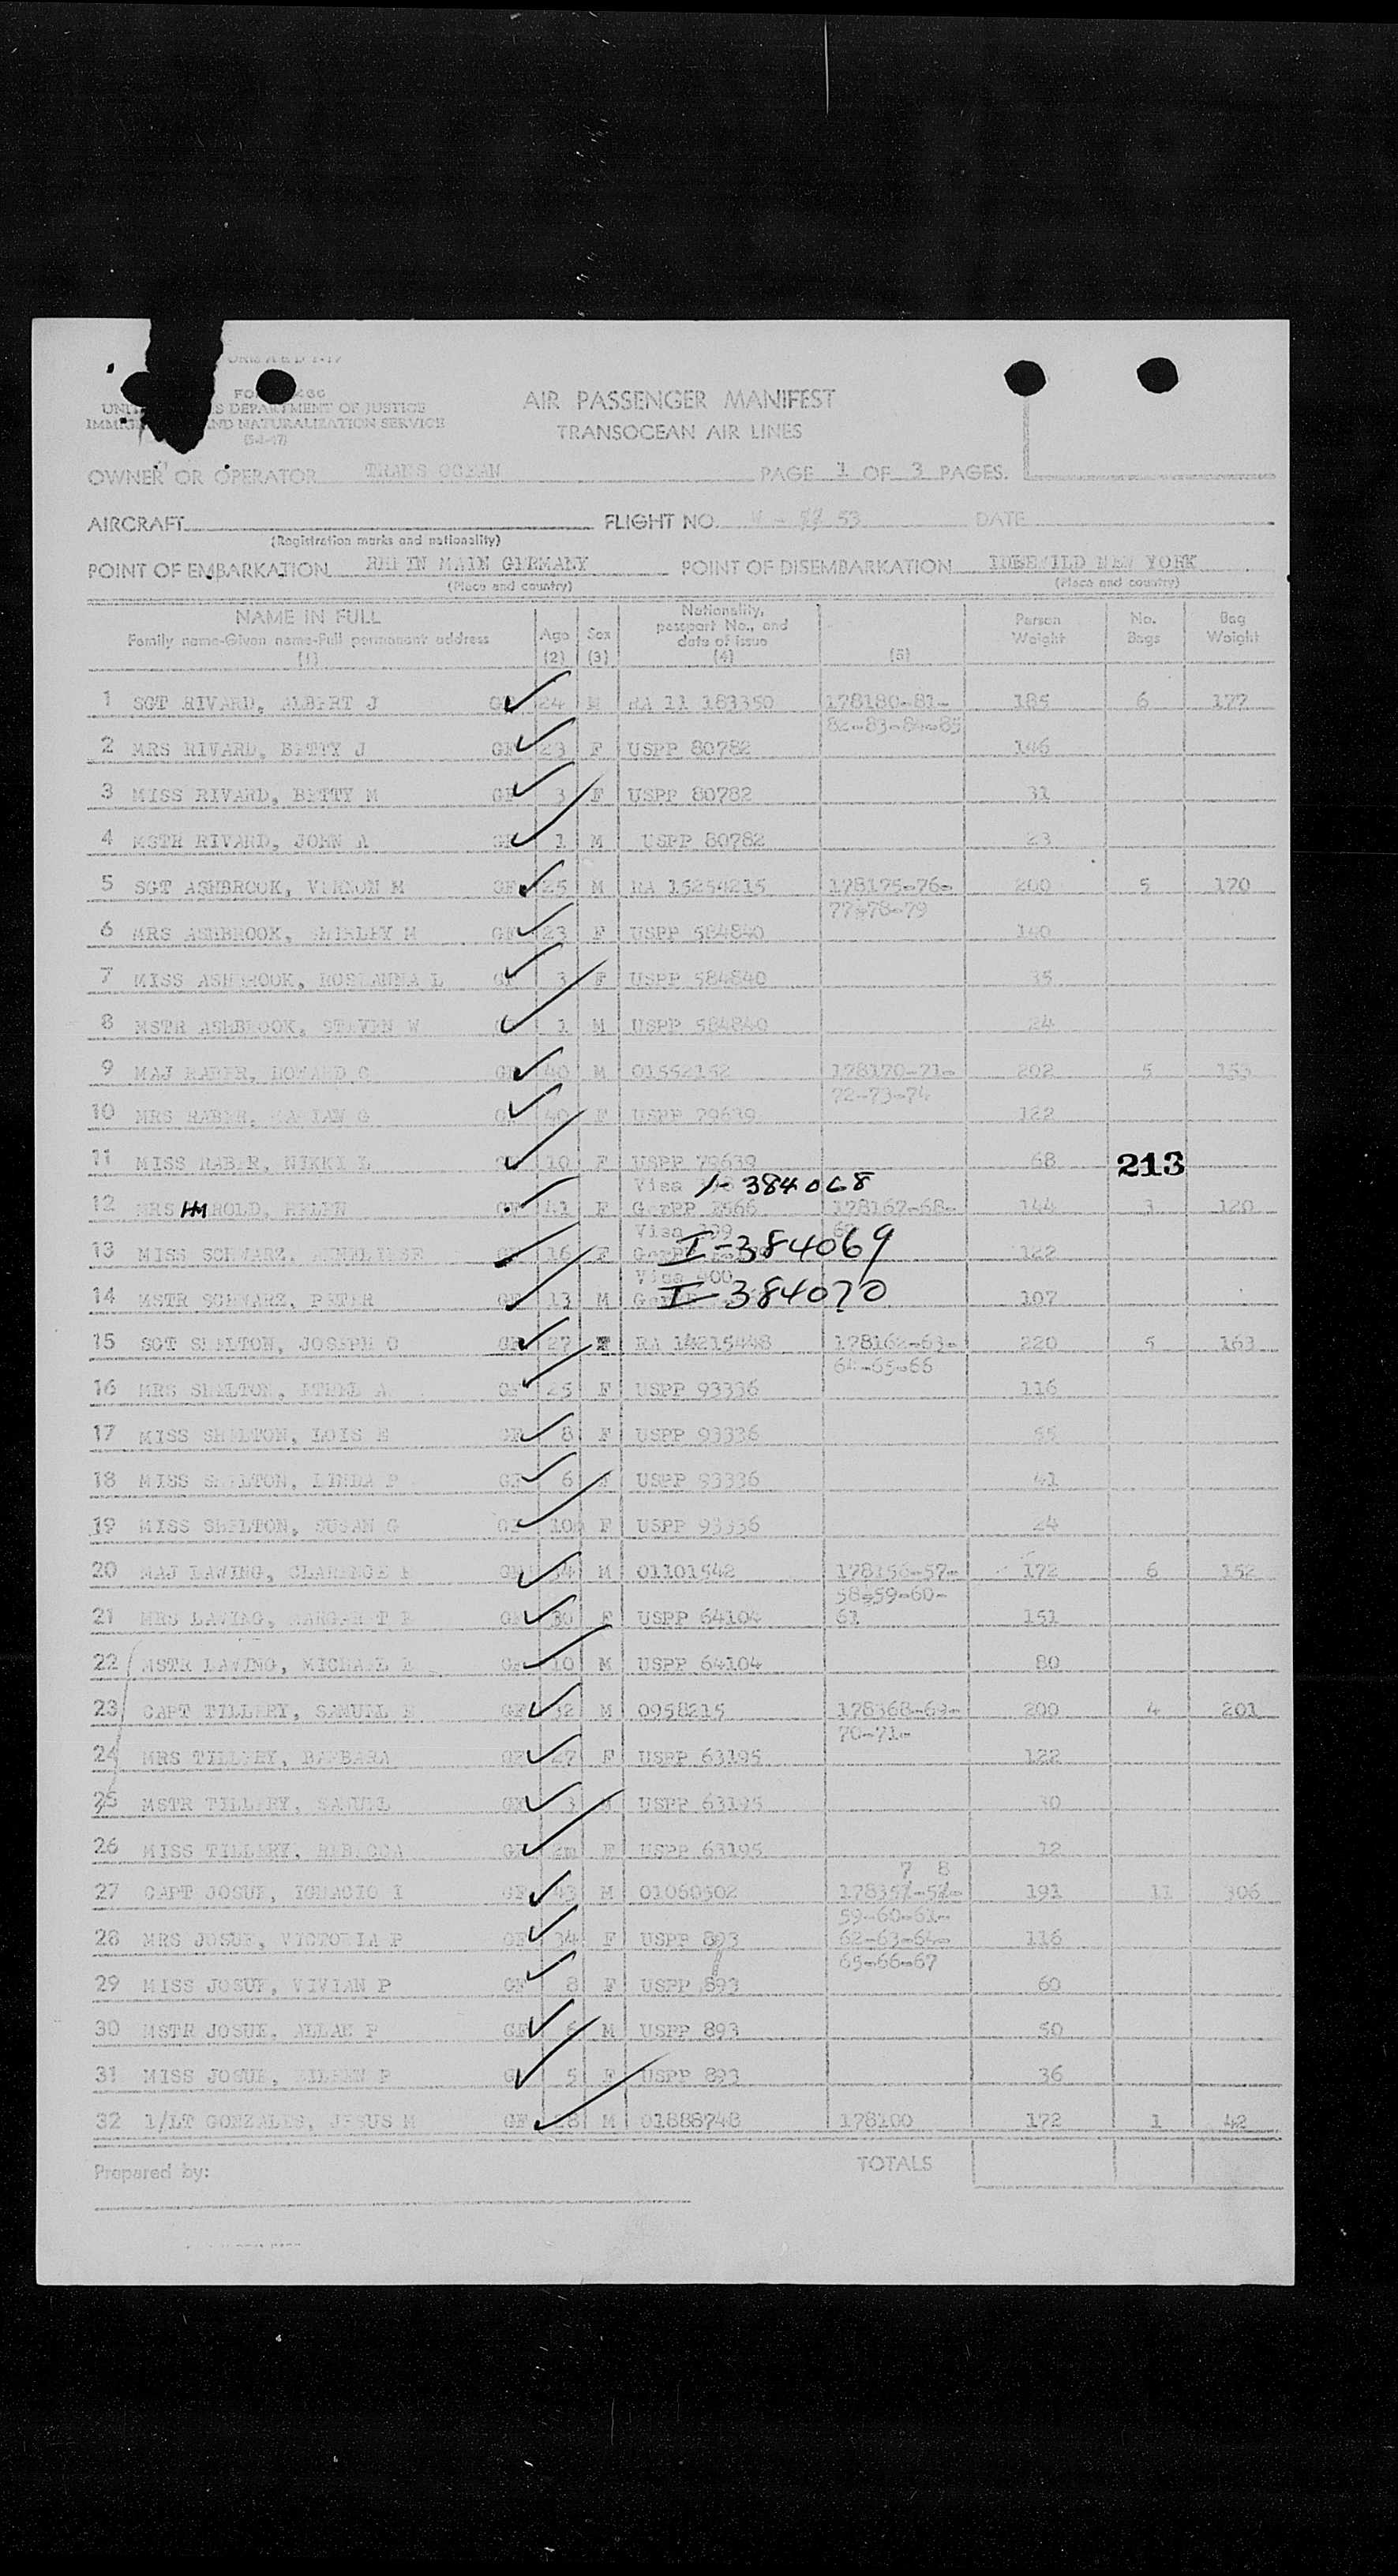 UNI S DEPARTMENT OF JUSTICE
IMMIG ND NATURALIZATION SERVICE
(5-1-47)
AIR PASSENGER MANIFEST
TRANSOCEAN AIR LINES
OWNER OR OPERATOR TRANS OCEAN PAGE 1 OF 3 PAGES.
AIRCRAFT FLIGHT NO. 53 DATE
(Registration marks and nationality)
POINT OF EMBARKATION RHEIN MAIN GERMANY POINT OF DISEMBARKATION IDLEWILD NEW YORK
(Place and country) (Place and country)
NAME IN FULL
Family name-Given name-Full permanent address
(1)
Age
(2)
Sex
(3)
Nationality,
passport No., and
date of issue
(4)
(5)
Person
Weight
No.
Bags
Bag
Weight
1 SGT RIVARD, ALBERT J GF 24 M RA 11 183350 178180-81- 185 6 177
82-83-84-85
2 MRS RIVARD, BETTY J GF 23 F USPP 80782 146
3 MISS RIVARD, BETTY M GF 3 F USPP 80782 31
4 MSTR RIVARD, JOHN A GF 1 M USPP 80782 23
5 SGT ASHBROOK, VERNON M GF 25 M RA 15254215 178175-76- 200 5 170
77-78-79
6 MRS ASHBROOK, SHIRLEY M GF 23 F USPP 584840 140
7 MISS ASHBROOK, ROSEANNA L GF 3 F USPP 584840 35
8 MSTR ASHBROOK, STEVEN W GF 1 M USPP 584840 24
9 MAJ RABER, HOWARD C GF 40 M 01552152 178170-71- 202 5 153
72-73-74
10 MRS RABER, MARIAN G GF 40 F USPP 79639 122
11 MISS RABER, NIKKI L GF 10 F USPP 79639 68 213
Visa I-384068
12 MRS HAROLD, HELEN GF 41 F GerPP 2566 178167-68- 144 3 120
Visa
13 MISS SCHWARZ, GF 16 F I-384069 122
Visa 400
14 MSTR SCHWARZ, PETER GF 13 M I-384070 107
15 SGT SHELTON, JOSEPH O GF 27 RA 14215448 178162-63- 220 5 163
64-65-66
16 MRS SHELTON, ETHEL A GF 25 F USPP 93336 116
17 MISS SHELTON, LOIS E GF 8 F USPP 93336 55
18 MISS SHELTON, LINDA P GF 6 USPP 93336 41
19 MISS SHELTON, SUSAN G GF 10m F USPP 93336 24
20 MAJ LAWING, CLARENCE GF 34 M 01101542 178156-57- 172 6 152
58-59-60-
21 MRS LAWING, MARGARET GF 30 F USPP 64104 61 151
22 MSTR LAWING, MICHAEL GF 10 M USPP 64104 80
23 CAPT TILLERY, SAMUEL GF 32 M 0958215 178368-69- 200 4 201
70-71-
24 MRS TILLERY, BARBARA GF 27 F USPP 63195 122
25 MSTR TILLERY, SAMUEL GF 3 USPP 63195 30
26 MISS TILLERY, REBECCA GF 2m F USPP 63195 12
7 8
27 CAPT JOSUE, IGNACIO I GF 43 M 01060502 178357-58- 191 11 306
59-60-61-
28 MRS JOSUE, VICTORIA P GF 34 F USPP 893 62-63-64- 116
65-66-67
29 MISS JOSUE, VIVIAN P GF 8 F USPP 893 60
30 MSTR JOSUE, ALLAN P GF 6 M USPP 893 50
31 MISS JOSUE, EILEEN P GF 5 F USPP 893 36
32 1/LT GONZALES, JESUS M GF 28 M 01888748 178100 172 1 42
Prepared by: TOTALS